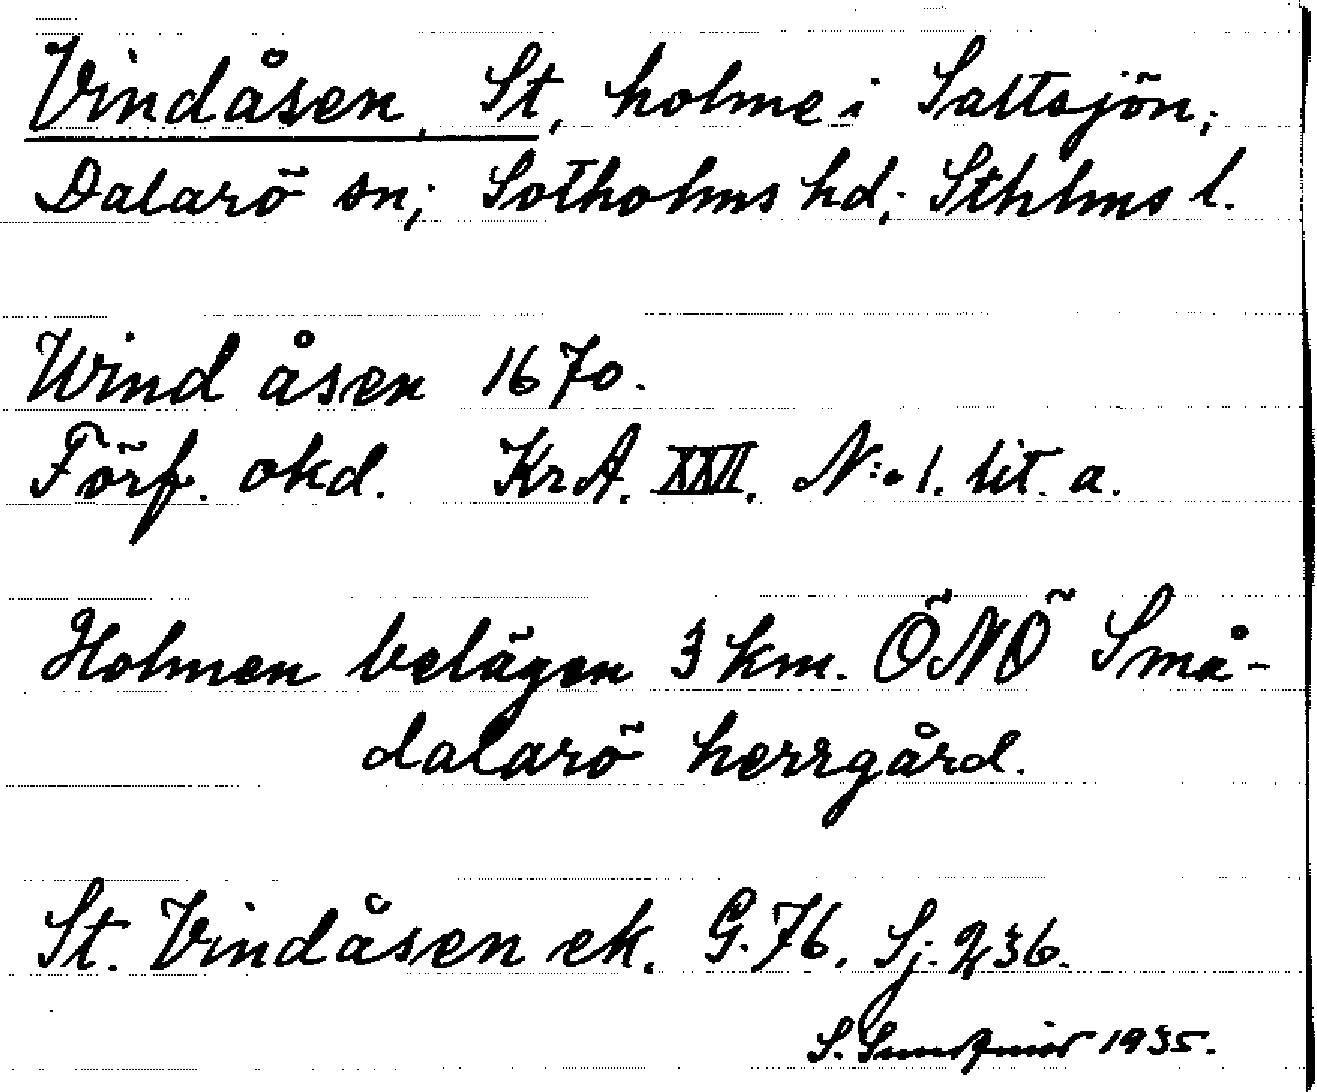 Vindåsen, St, holme i Saltsjön;
Dalarö sn; Sotholms hd; Sthlms l.
Wind åsen 1670.
Förf. okd. KrA. XXVI. N:o 1. lit. a.
Holmen belägen 3 km. ÖNÖ Små-
dalarö herrgård.
St. Vindåsen ek. G. 76. Sj. 236.
S. 1935.